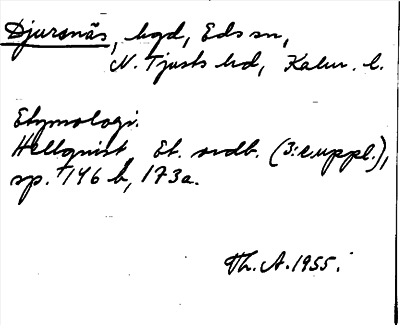 Djursnäs, hgd, Eds sn,
N. Tjusts hd, Kalm. l.
Etymologi.
Hellquist, Et. ordb. (3:e uppl.),
sp. 146 b, 173a.
Th. A. 1955.